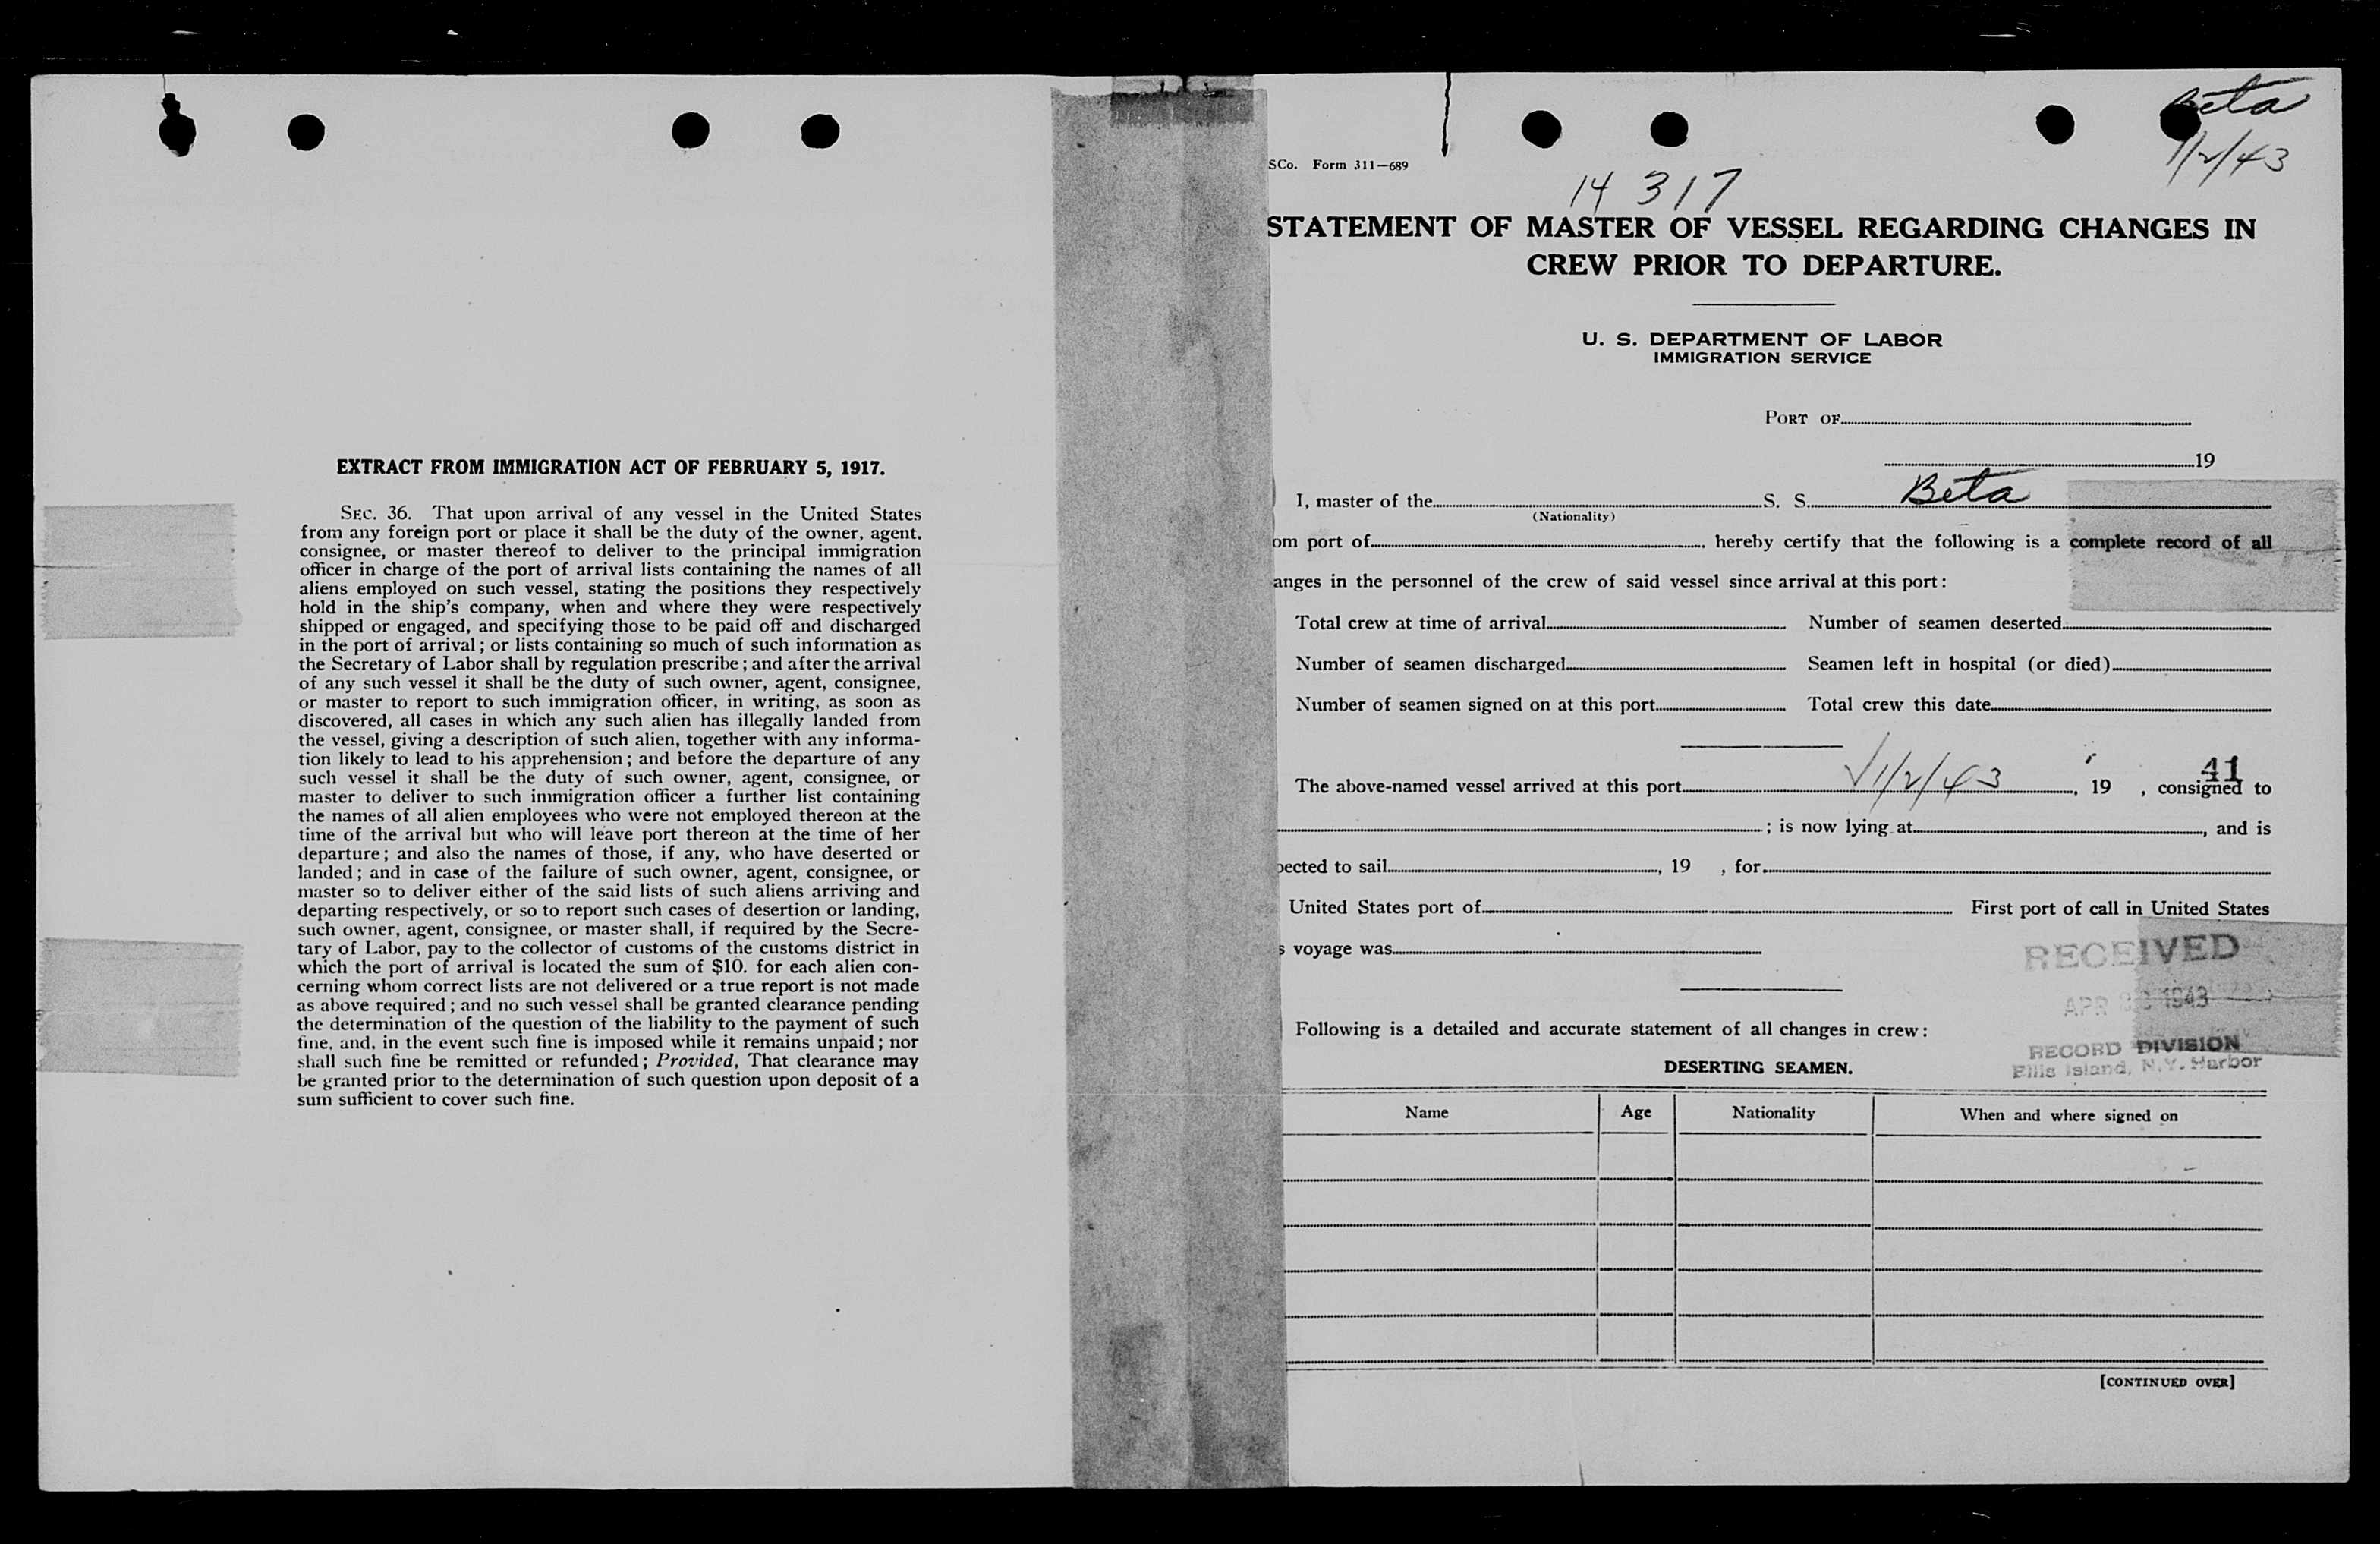 EXTRACT FROM IMMIGRATION ACT OF FEBRUARY 5, 1917.
SEC. 36. That upon arrival of any vessel in the United States
from any foreign port or place it shall be the duty of the owner, agent,
consignee, or master thereof to deliver to the principal immigration
officer in charge of the port of arrival lists containing the names of all
aliens employed on such vessel, stating the positions they respectively
hold in the ship's company, when and where they were respectively
shipped or engaged, and specifying those to be paid off and discharged
in the port of arrival; or lists containing so much of such information as
the Secretary of Labor shall by regulation prescribe; and after the arrival
of any such vessel it shall be the duty of such owner, agent, consignee,
or master to report to such immigration officer, in writing, as soon as
discovered, all cases in which any such alien has illegally landed from
the vessel, giving a description of such alien, together with any informa-
tion likely to lead to his apprehension; and before the departure of any
such vessel it shall be the duty of such owner, agent, consignee, or
master to deliver to such immigration officer a further list containing
the names of all alien employees who were not employed thereon at the
time of the arrival but who will leave port thereon at the time of her
departure; and also the names of those, if any, who have deserted or
landed; and in case of the failure of such owner, agent, consignee, or
master so to deliver either of the said lists of such aliens arriving and
departing respectively, or so to report such cases of desertion or landing,
such owner, agent, consignee, or master shall, if required by the Secre-
tary of Labor, pay to the collector of customs of the customs district in
which the port of arrival is located the sum of $10. for each alien con-
cerning whom correct lists are not delivered or a true report is not made
as above required; and no such vessel shall be granted clearance pending
the determination of the question of the liability to the payment of such
fine, and, in the event such fine is imposed while it remains unpaid; nor
shall such fine be remitted or refunded; Provided, That clearance may
be granted prior to the determination of such question upon deposit of a
sum sufficient to cover such fine.
Beta
1/2/43
SCo. Form 311-689
14317
STATEMENT OF MASTER OF VESSEL REGARDING CHANGES IN
CREW PRIOR TO DEPARTURE.
U. S. DEPARTMENT OF LABOR
IMMIGRATION SERVICE
PORT OF
19
I, master of the S. S. Beta
(Nationality)
om port of , hereby certify that the following is a complete record of all
anges in the personnel of the crew of said vessel since arrival at this port:
Total crew at time of arrival Number of seamen deserted
Number of seamen discharged Seamen left in hospital (or died)
Number of seamen signed on at this port Total crew this date
41
The above-named vessel arrived at this port 1/2/43 , 19 , consigned to
; is now lying at , and is
pected to sail , 19 , for
United States port of First port of call in United States
s voyage was
RECEIVED
APR 1943
RECORD DIVISION
Ellis Island, N.Y. Harbor
Following is a detailed and accurate statement of all changes in crew:
DESERTING SEAMEN.
Name Age Nationality When and where signed on
[CONTINUED OVER]